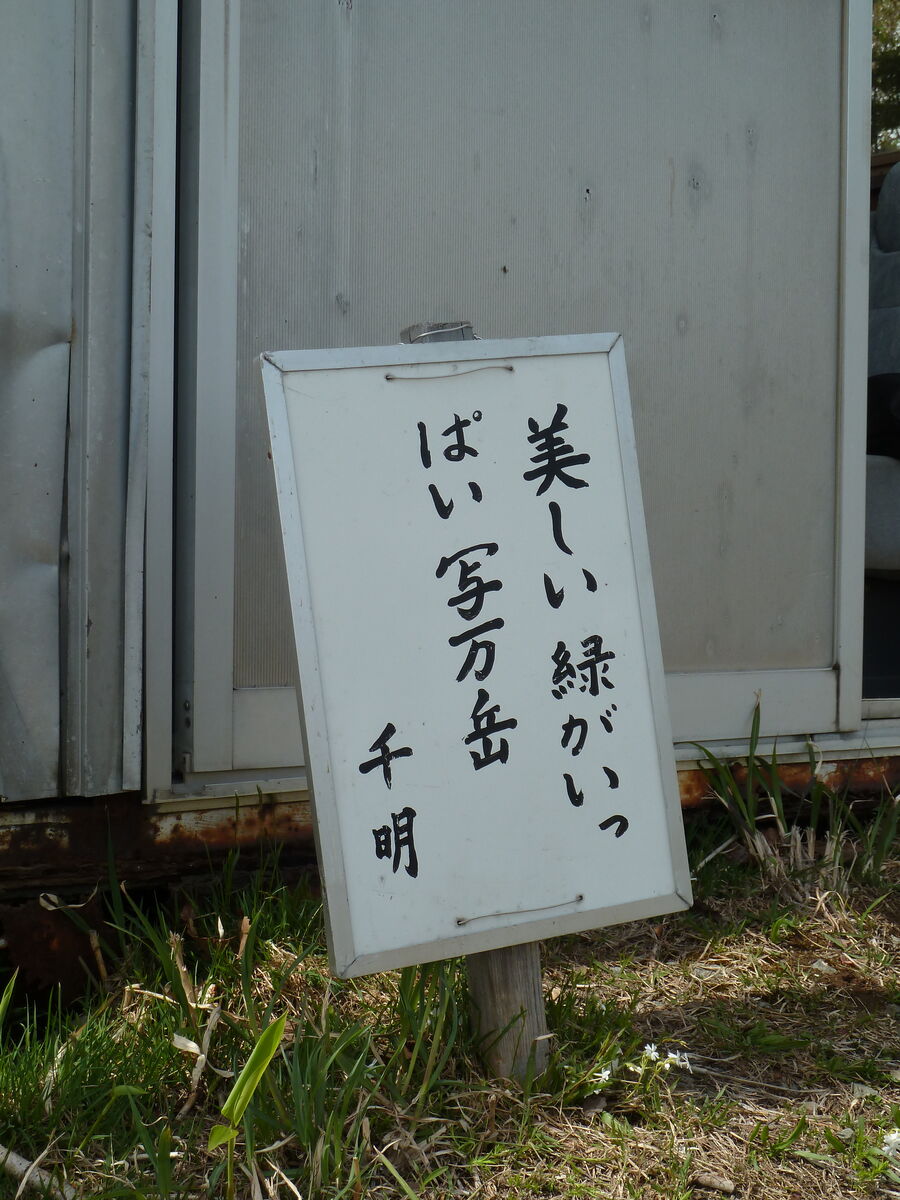 美しい 緑がいっ
ぱい 写万岳
千明